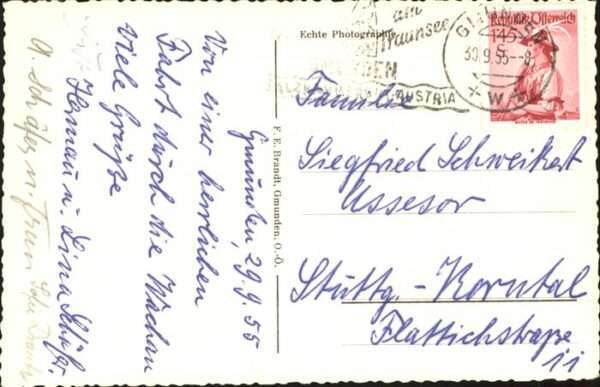 Gmunden, 29.9.55
Von einer herrlichen
Fahrt durch die Wachau
viele Grüße
Herman u. Lina Schäfer
G. Schäfer n. Frau
F. E. Brandt, Gmunden, O.-Ö.
Echte Photographie
am
Traunsee
AUSTRIA
GMUNDEN
30.9.55--8
W
Republik Österreich
1.45 S
Familie
Siegfried Schweikert
Assesor
Stuttg.-Korntal
Flattichstraße
11